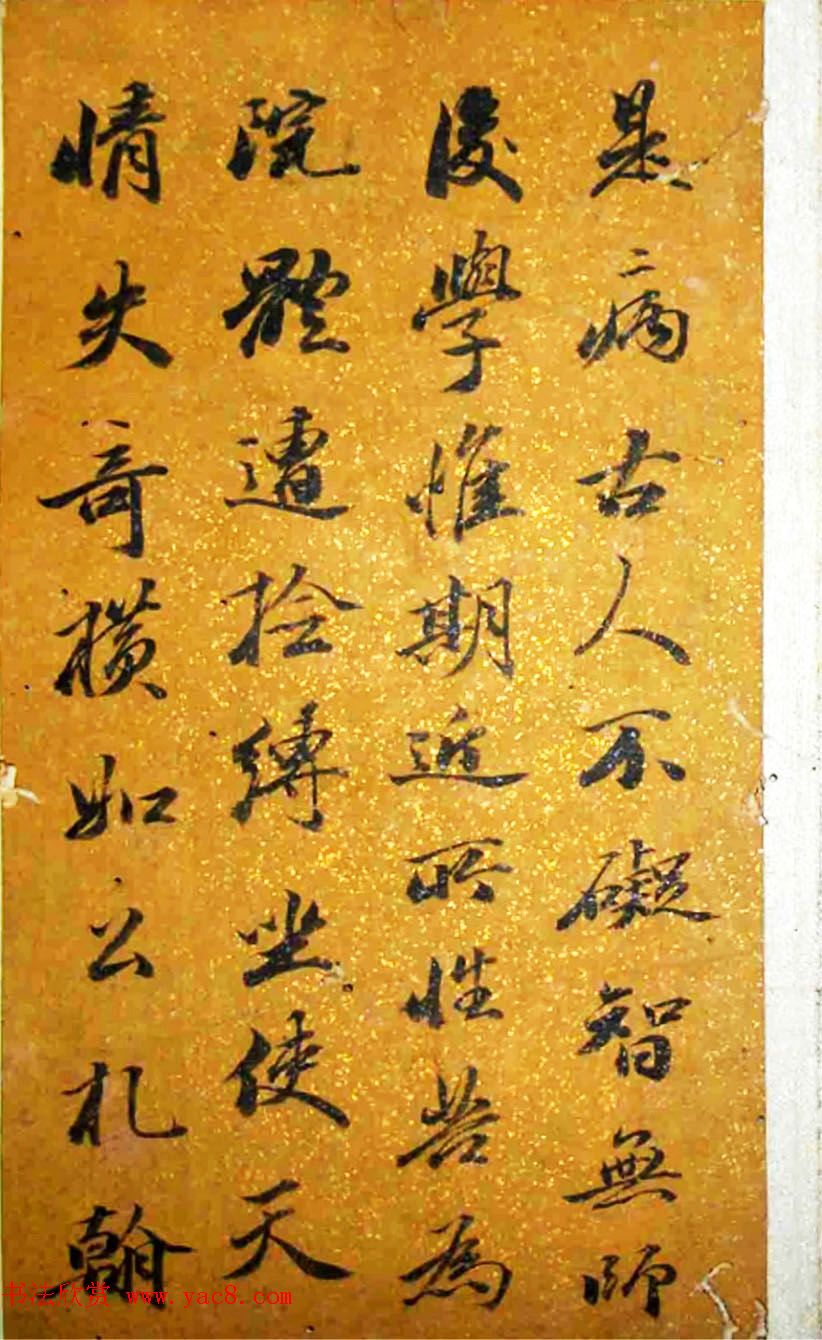 是病古人不礙智無師
後學惟期近所性苦為
院體遭拴縛坐使天
情失奇橫如公札翰
书法欣赏 www.yac8.com